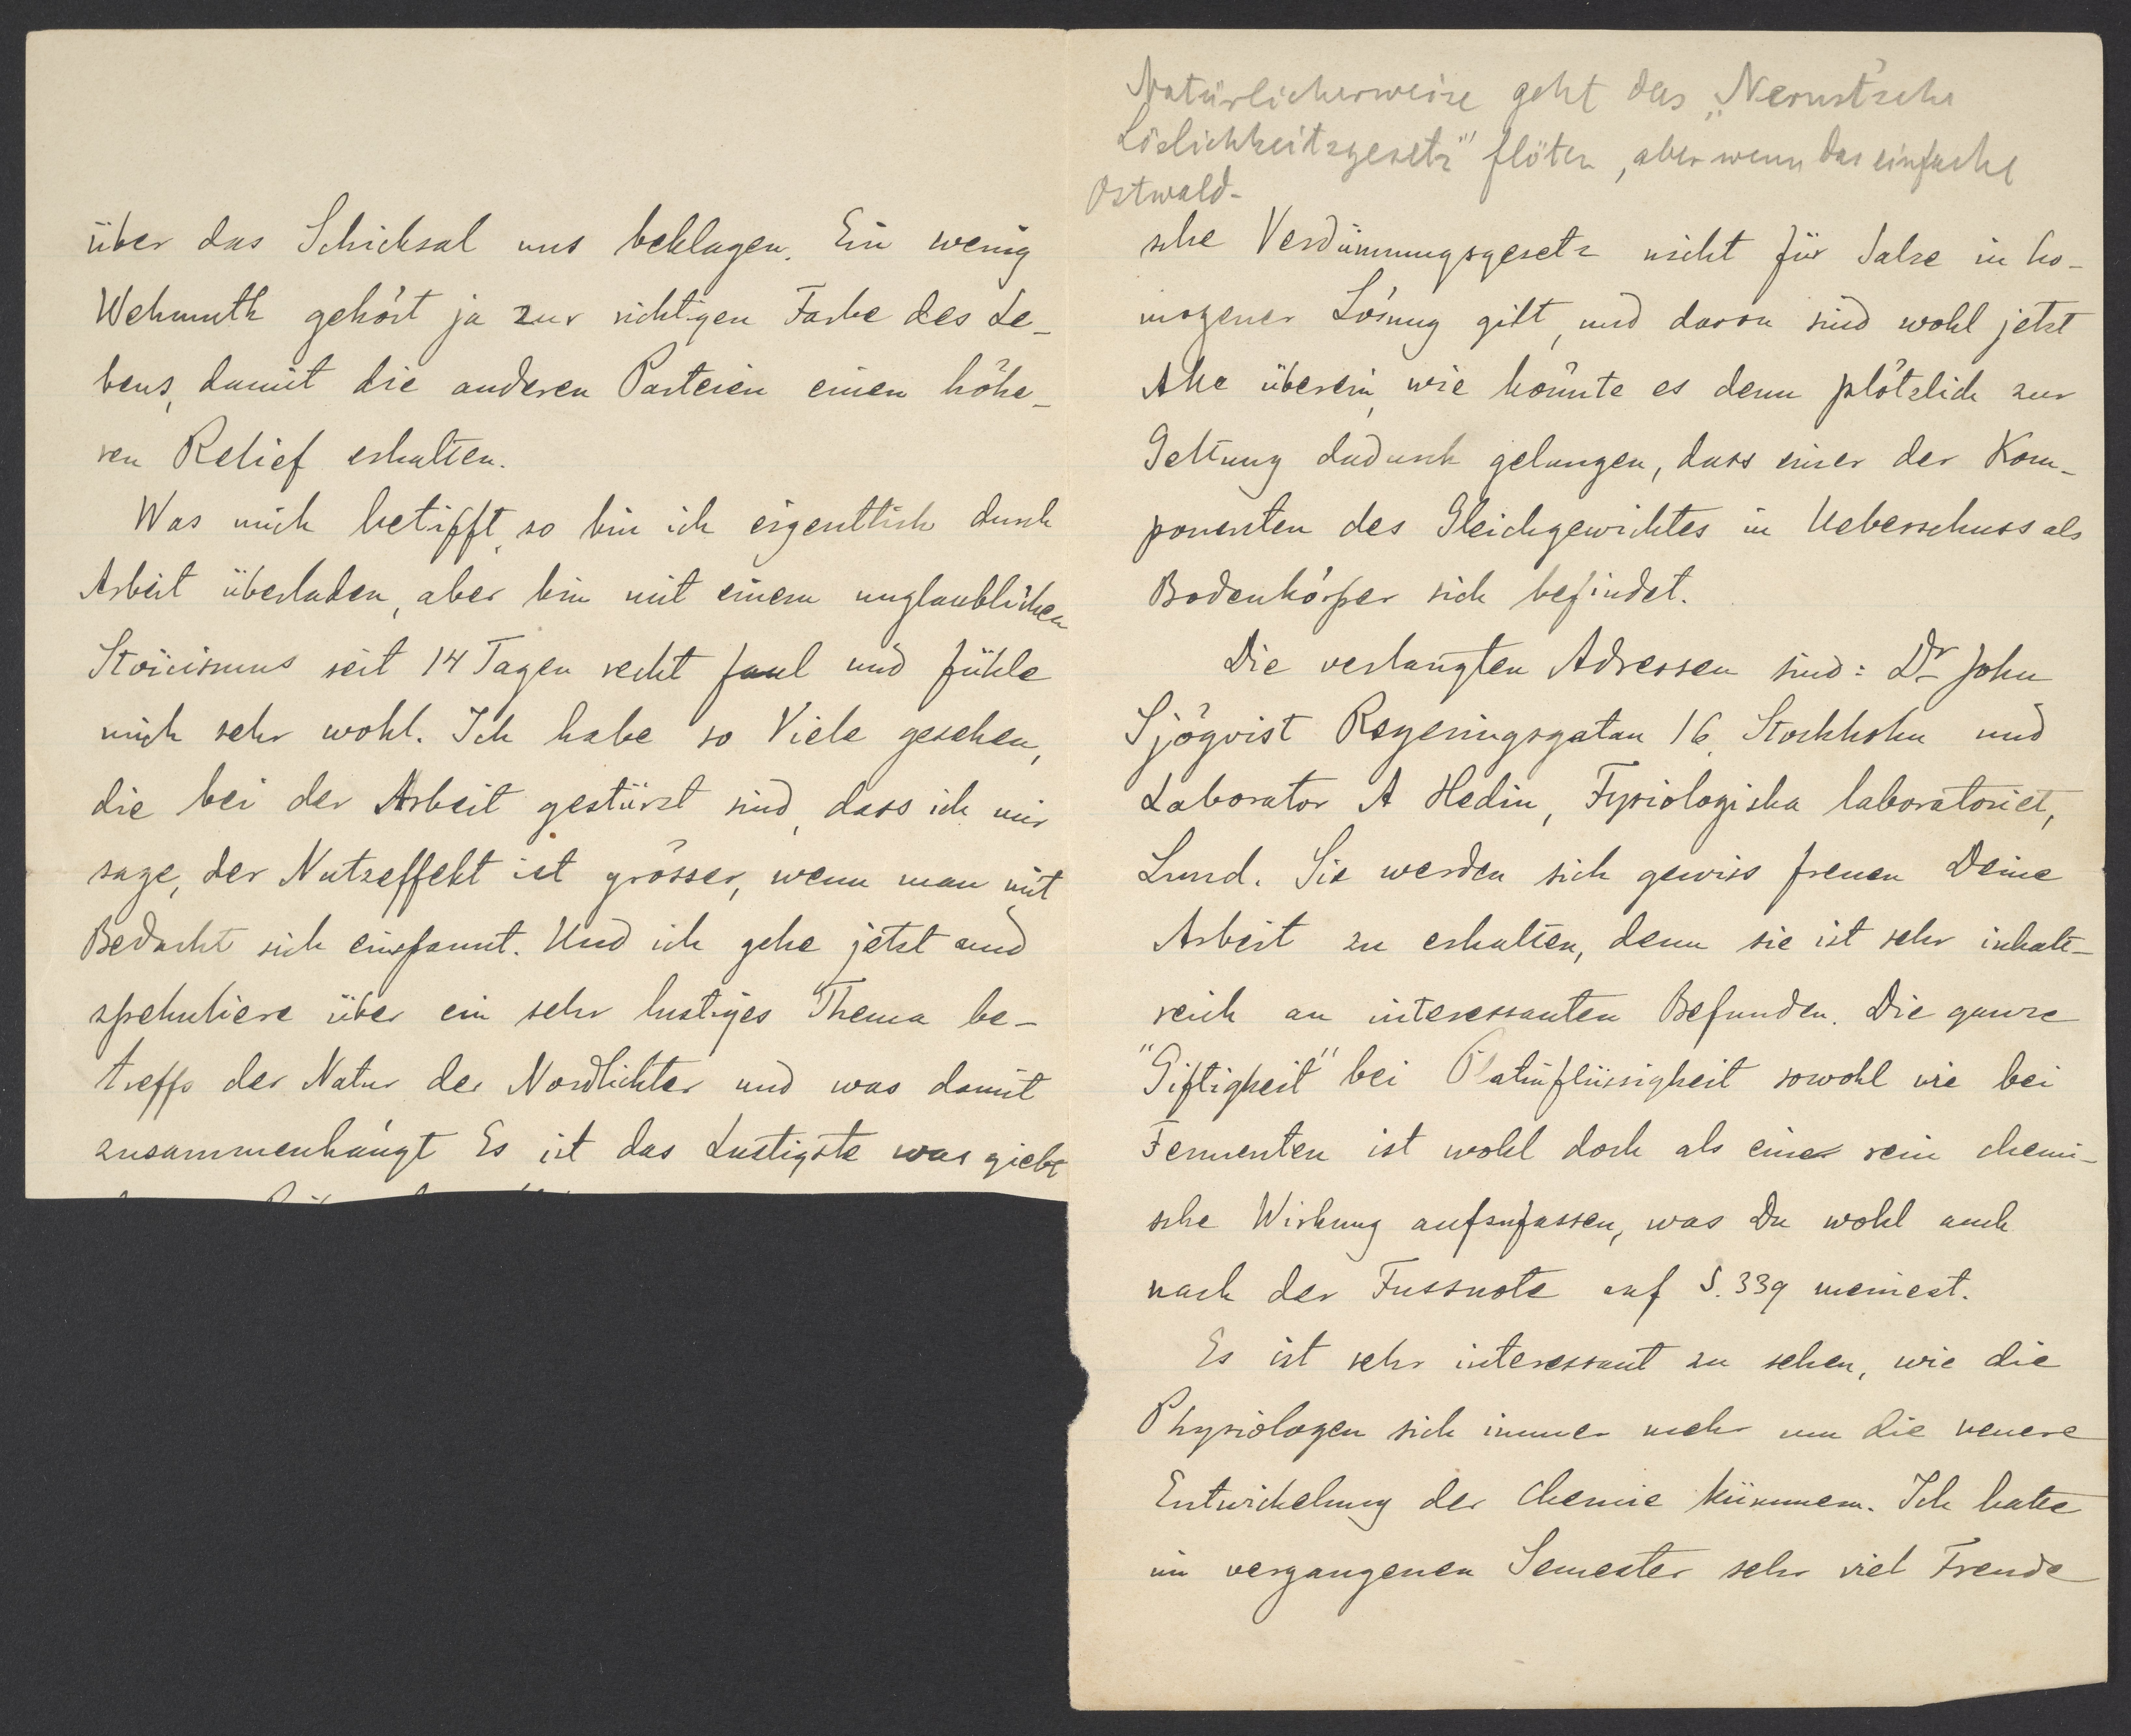 über das Schicksal uns beklagen. Ein wenig
Wehmuth gehört ja zur richtigen Farbe des Le-
bens, damit die anderen Parteien einen höhe-
ren Relief erhalten.
Was mich betrifft, so bin ich eigentlich durch
Arbeit überladen, aber bin mit einem unglaublichen
Stoicismus seit 14 Tagen recht faul und fühle
mich sehr wohl. Ich habe so Viele gesehen,
die bei der Arbeit gestürzt sind, dass ich mir
sage, der Nutzeffekt ist grösser, wenn man mit
Bedacht sich einspannt. Und ich gehe jetzt und
spekuliere über ein sehr lustiges Thema be-
treffs der Natur der Nordlichter und was damit
zusammenhängt Es ist das Lustigste was giebt
Natürlicherweise geht das „Nernst'sche
Löslichkeitsgesetz" flöten, aber wenn das einfache
Ostwald-
sche Verdünnungsgesetz nicht für Salze in ho-
mogener Lösung gilt, und davon sind wohl jetzt
Alle überein, wie könnte es denn plötzlich zur
Geltung dadurch gelangen, dass einer der Kom-
ponenten des Gleichgewichtes in Ueberschuss als
Bodenkörper sich befindet.
Die verlangten Adressen sind: Dr John
Sjöqvist Regeringsgatan 16, Stockholm und
Laborator A Hedin, Fysiologiska laboratoriet,
Lund. Sie werden sich gewiss freuen Deine
Arbeit zu erhalten, denn sie ist sehr inhalt-
reich an interessanten Befunden. Die ganze
"Giftigkeit" bei Platinflüssigkeit sowohl wie bei
Fermenten ist wohl doch als eine rein chemi-
sche Wirkung aufzufassen, was Du wohl auch
nach der Fussnote auf S. 339 meinest.
Es ist sehr interessant zu sehen, wie die
Physiologen sich immer mehr um die neuere
Entwickelung der Chemie kümmern. Ich hatte
im vergangenen Semester sehr viel Freude